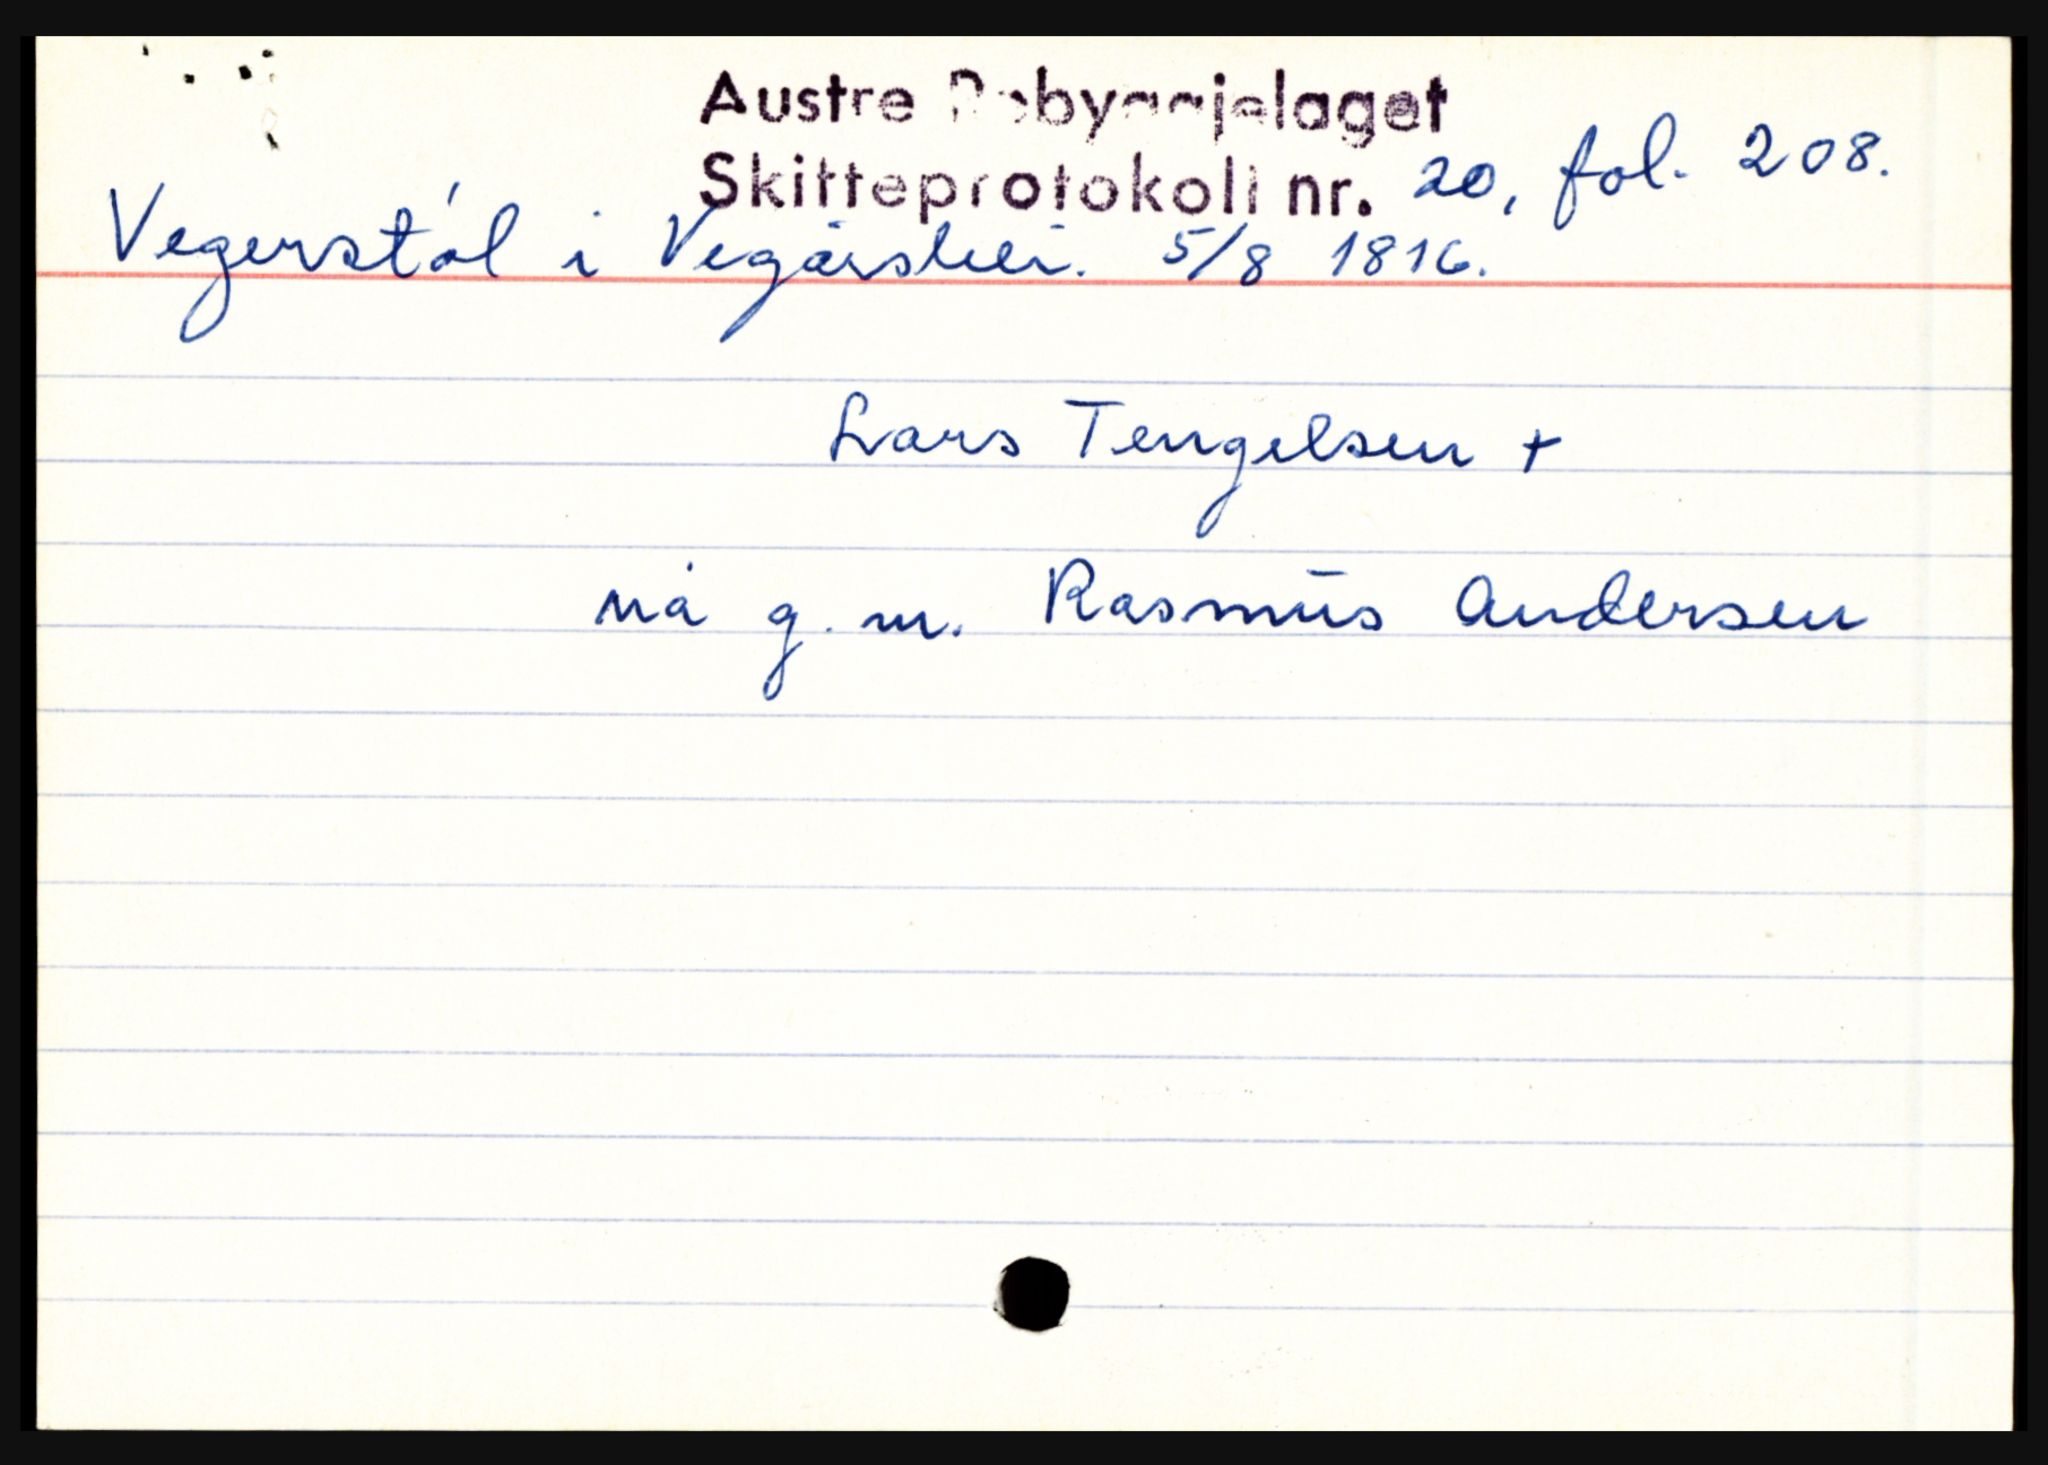 Austre Robyggjelaget
Skifteprotokoll nr. 20, fol. 208.
Vegerstøl i Vegårshei. 5/8 1816.
Lars Tengelsen +
nå g. m. Rasmus Andersen